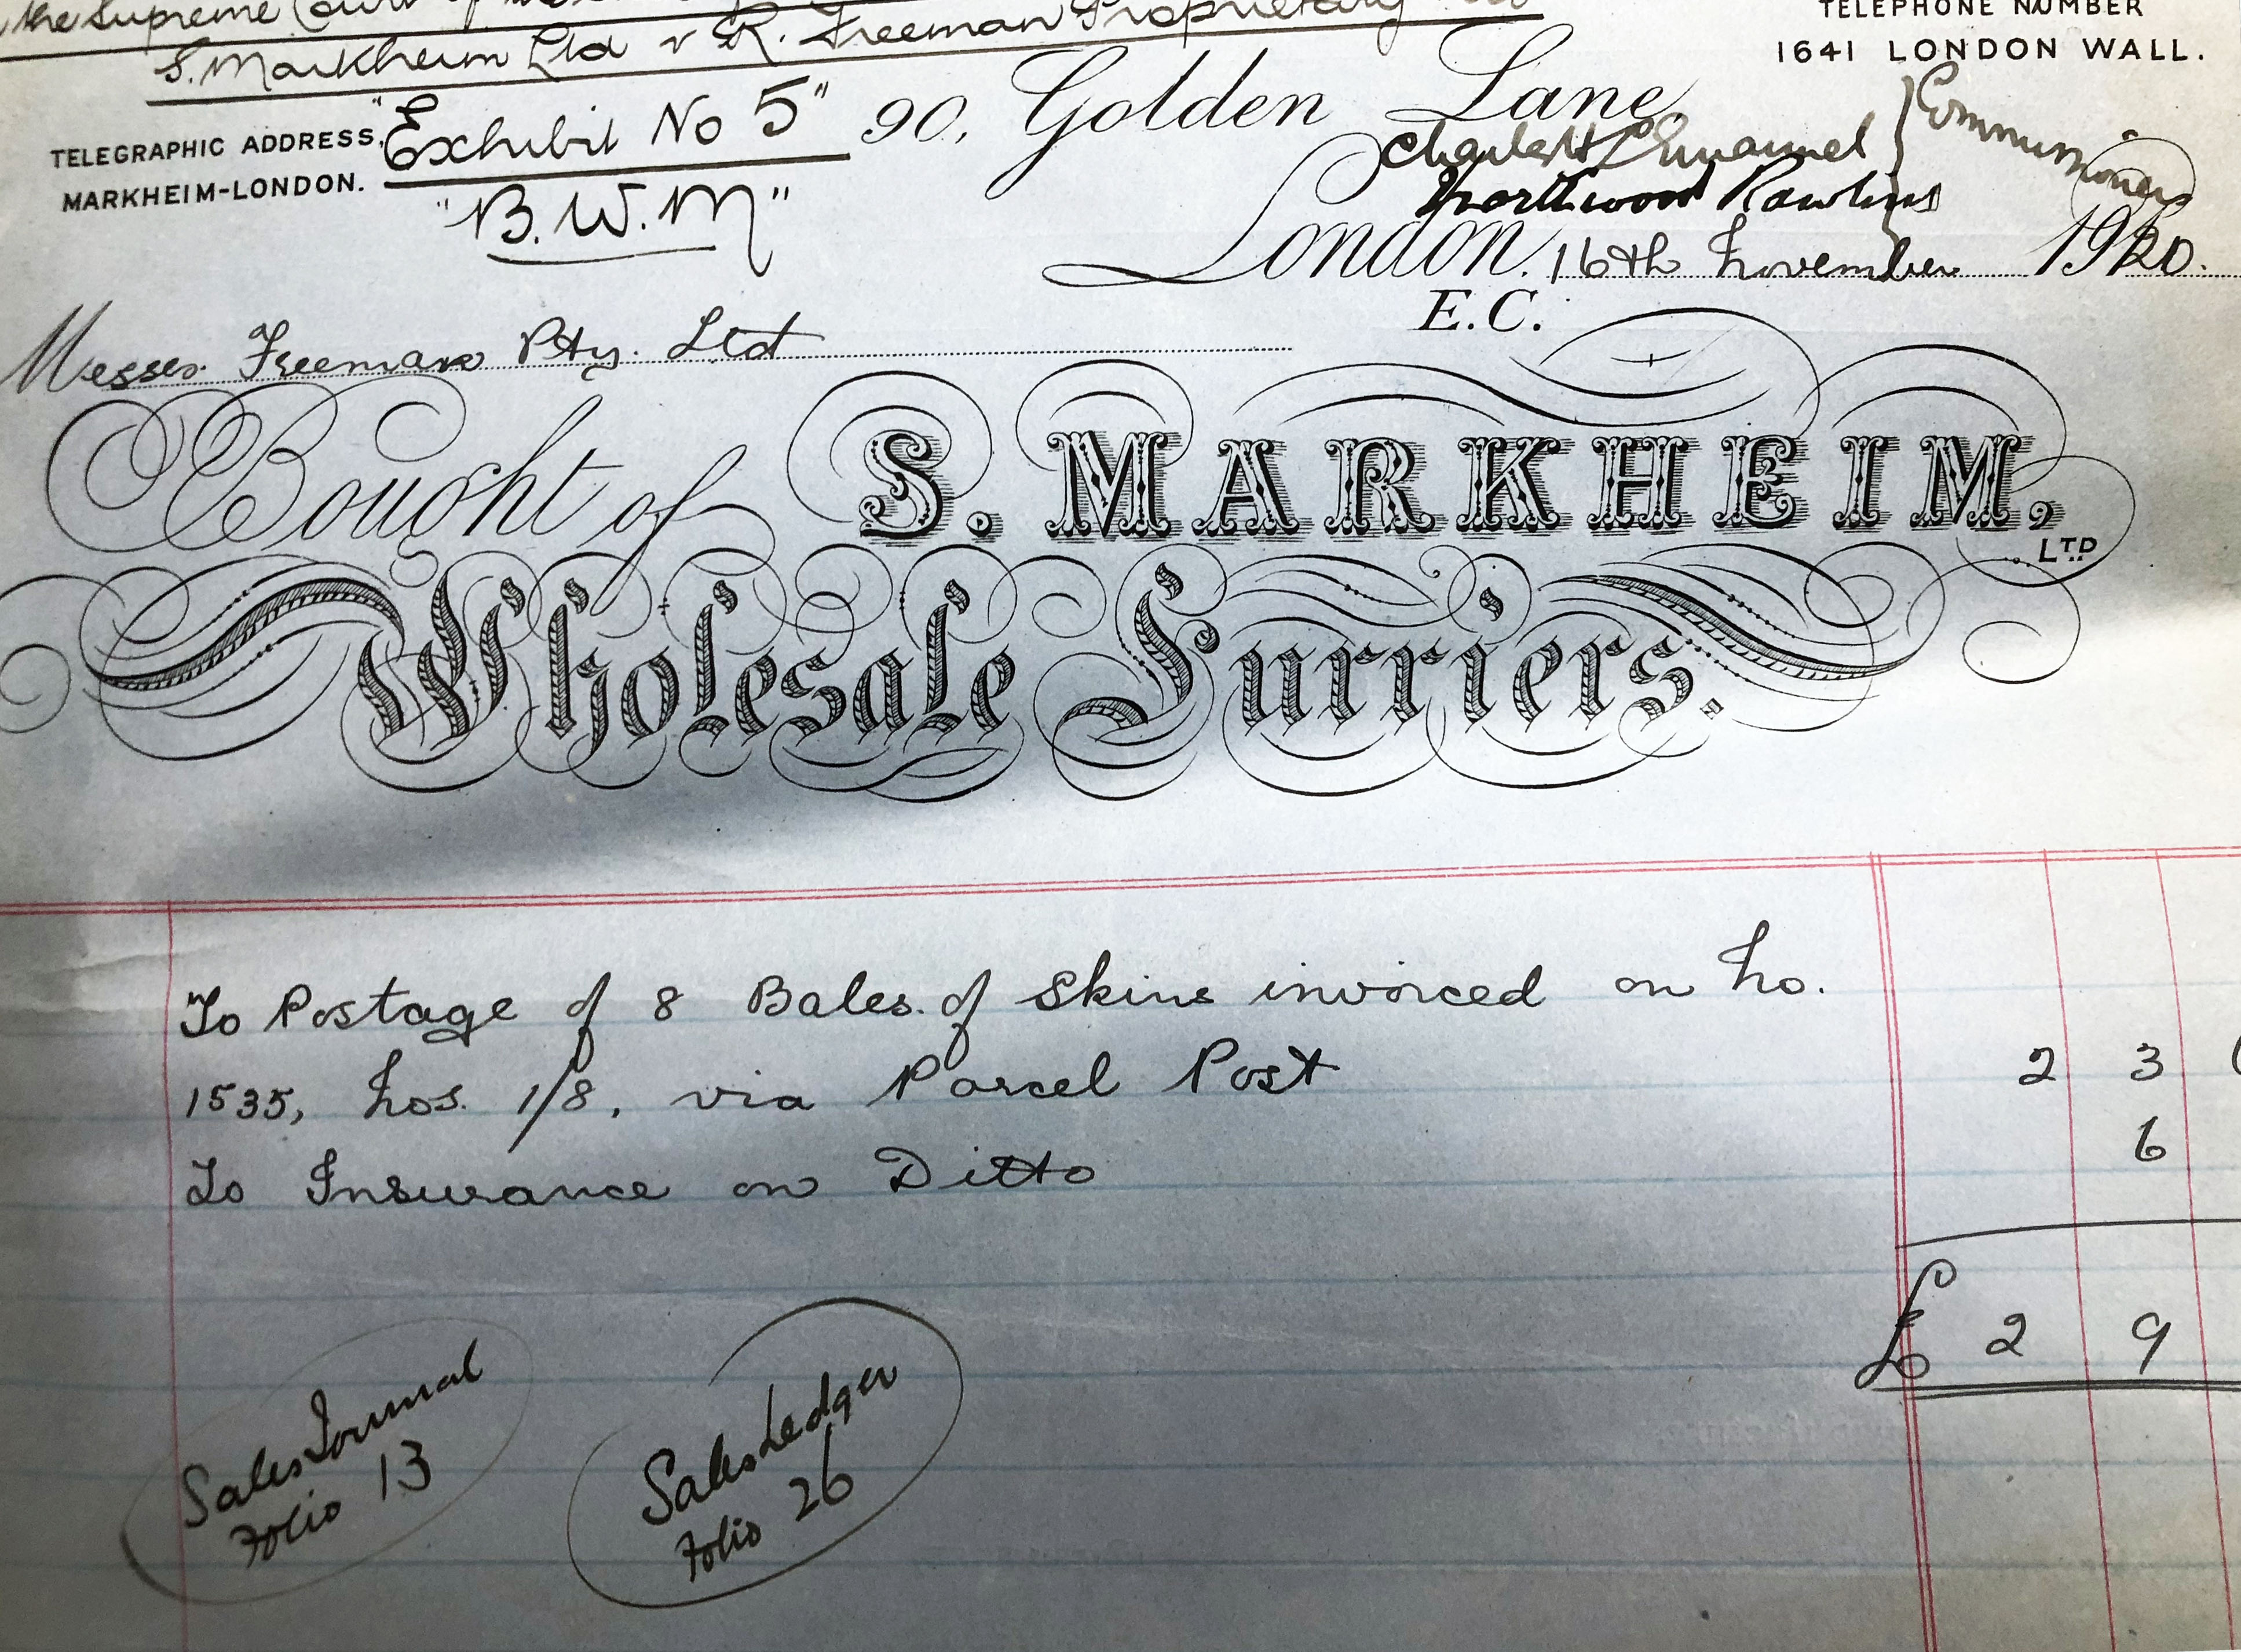 the Supreme Court of
S. Markheim Ltd v R. Freeman Proprietary
TELEPHONE NUMBER
1641 LONDON WALL.
TELEGRAPHIC ADDRESS,
MARKHEIM-LONDON.
"Exhibit No 5"
"B.W.M"
90, Golden Lane,
Charles H L Emanuel
Northwood Rawlins
Commissioners
London. 16th November 1920.
E.C.
Messrs. Freeman Pty. Ltd
Bought of S. MARKHEIM, LTD
Wholesale Furriers.
To Postage of 8 Bales of Skins invoiced on No.
1535, Nos. 1/8, via Parcel Post 2 3
To Insurance on Ditto 6
£ 2 9
Sales Journal
Folio 13
Sales Ledger
Folio 26